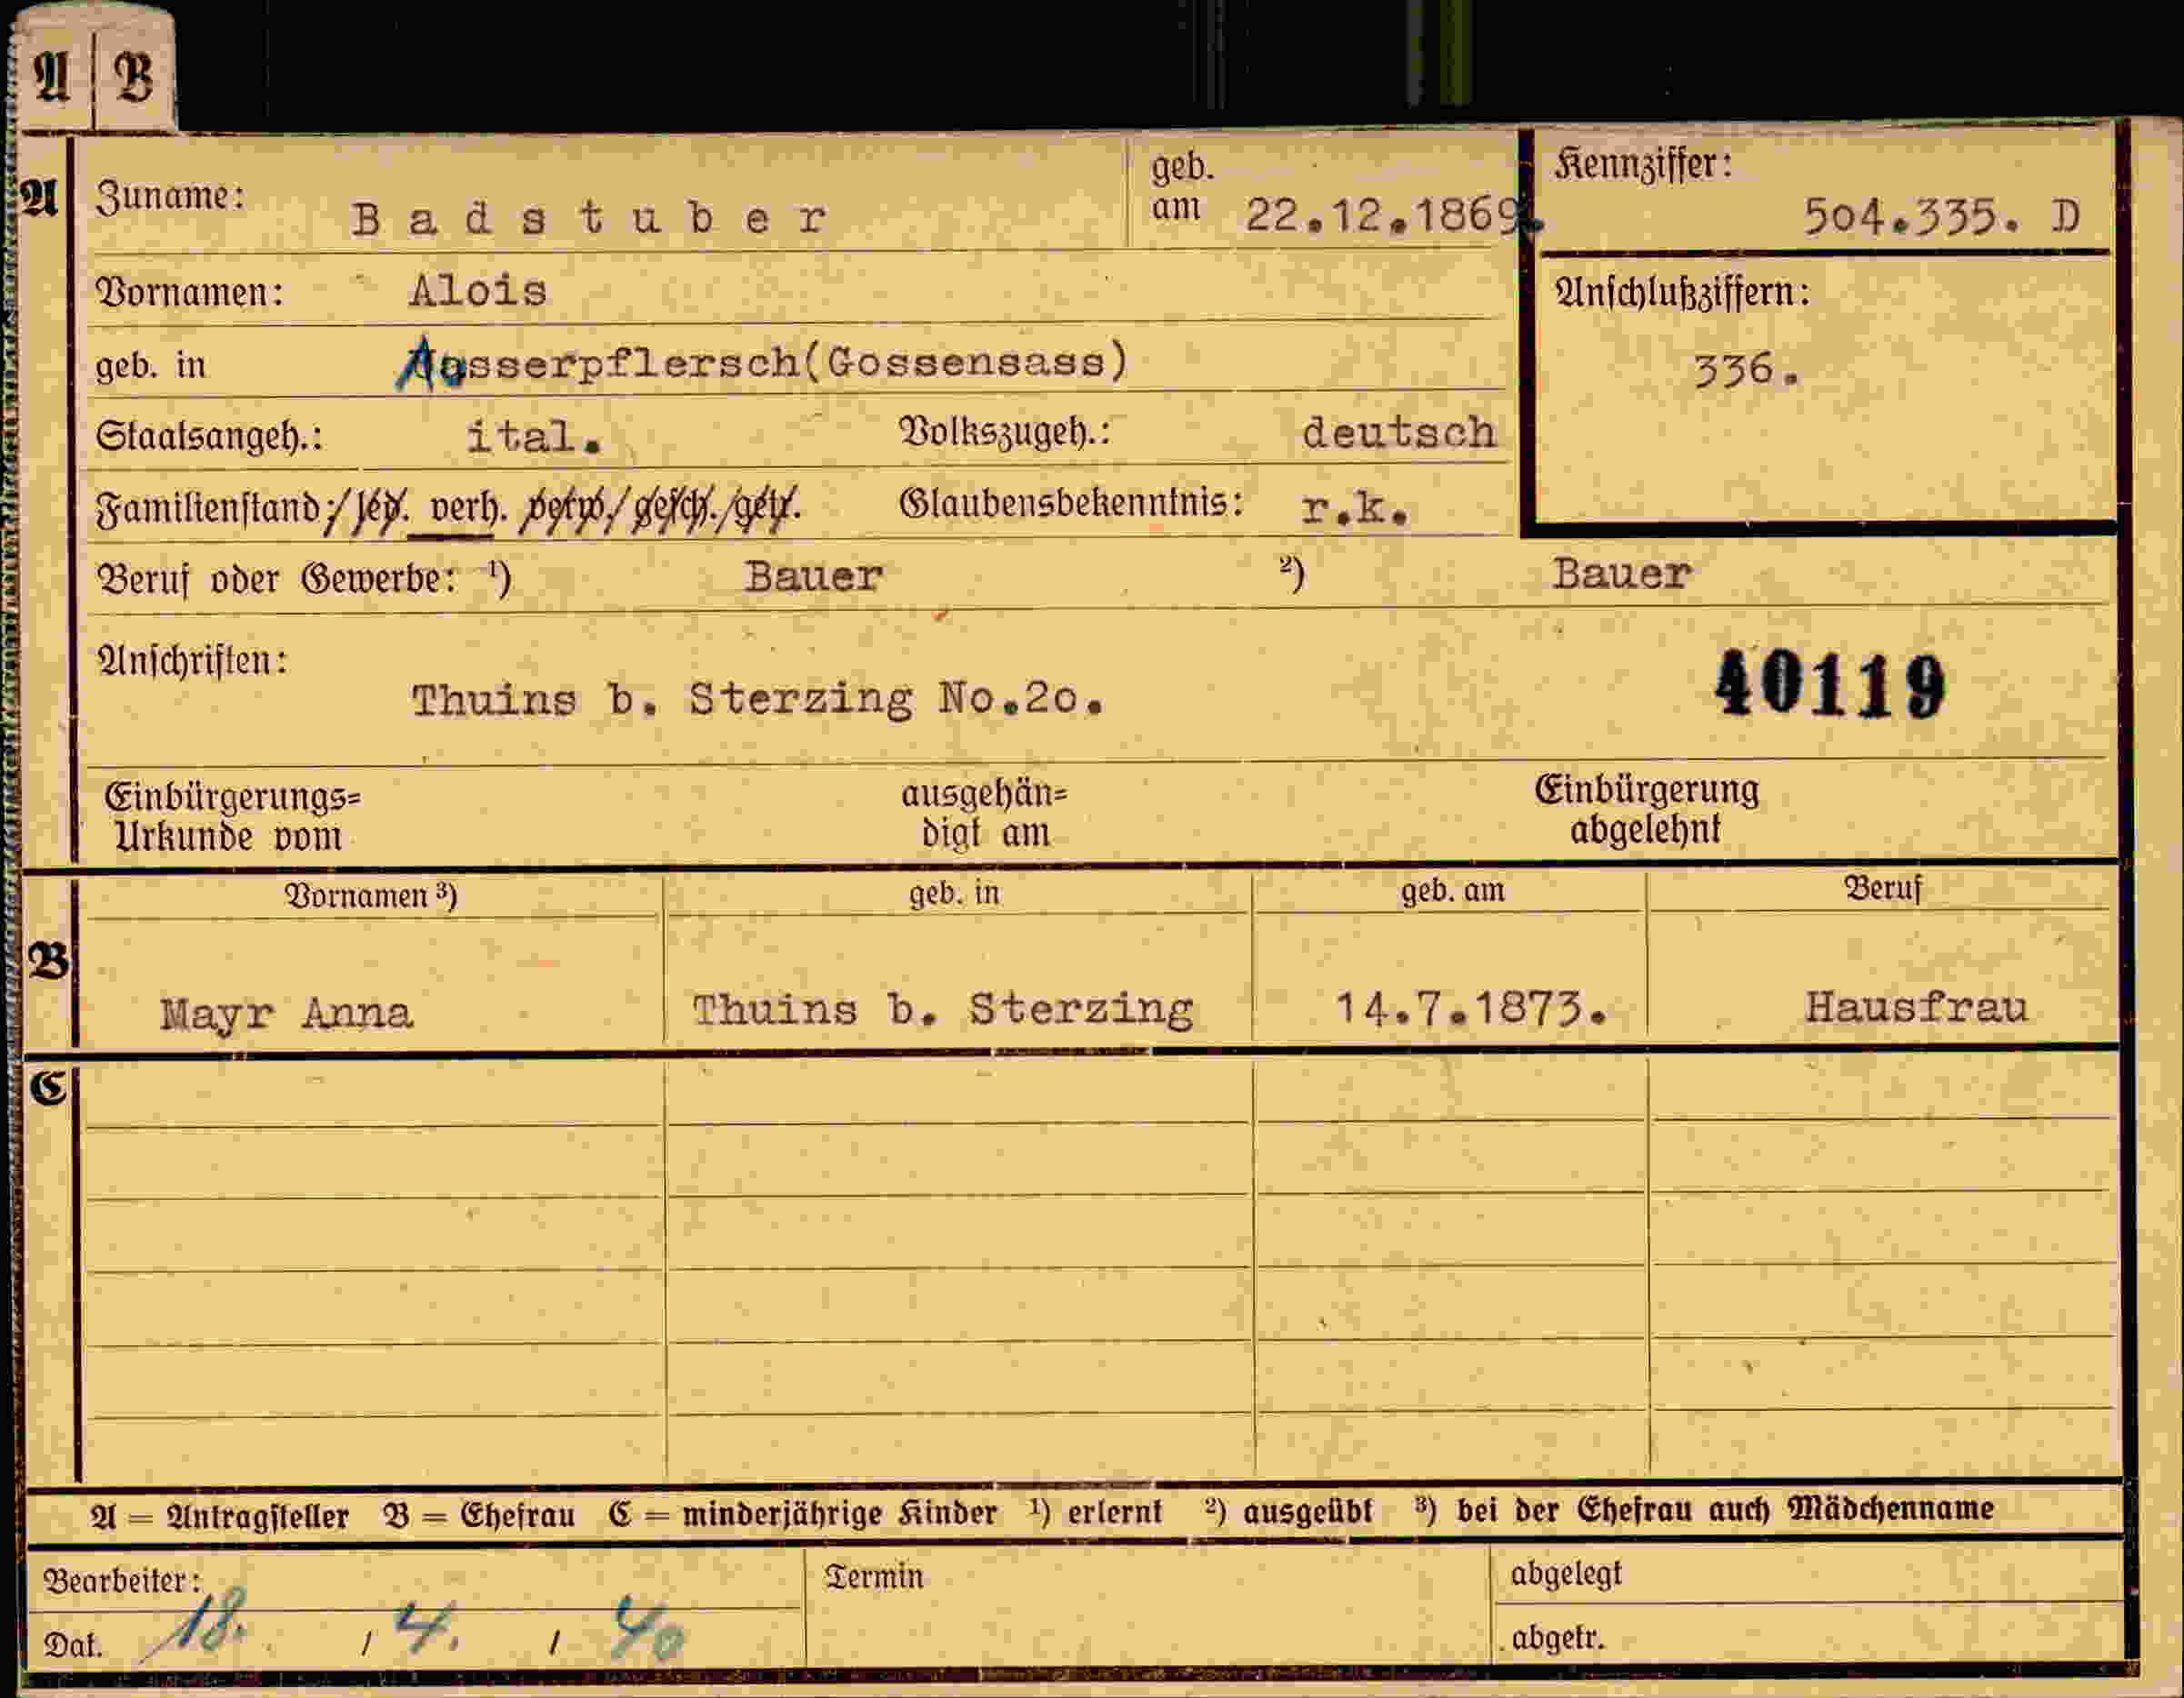 A B
A Zuname: Badstuber geb. am 22.12.1869. Kennziffer: 504.335. D
Vornamen: Alois Anschlußziffern:
geb. in Ausserpflersch(Gossensass) 336.
Staatsangeh.: ital. Volkszugeh.: deutsch
Familienstand: led. verh. verw. gesch. getr. Glaubensbekenntnis: r.k.
Beruf oder Gewerbe: ¹) Bauer ²) Bauer
Anschriften: 40119
Thuins b. Sterzing No.2o.
Einbürgerungs= ausgehän= Einbürgerung
Urkunde vom digt am abgelehnt
Vornamen ³) geb. in geb. am Beruf
B Mayr Anna Thuins b. Sterzing 14.7.1873. Hausfrau
C
A = Antragsteller B = Ehefrau C = minderjährige Kinder ¹) erlernt ²) ausgeübt ³) bei der Ehefrau auch Mädchenname
Bearbeiter: Termin abgelegt
Dat. 18. / 4. / 40 abgetr.